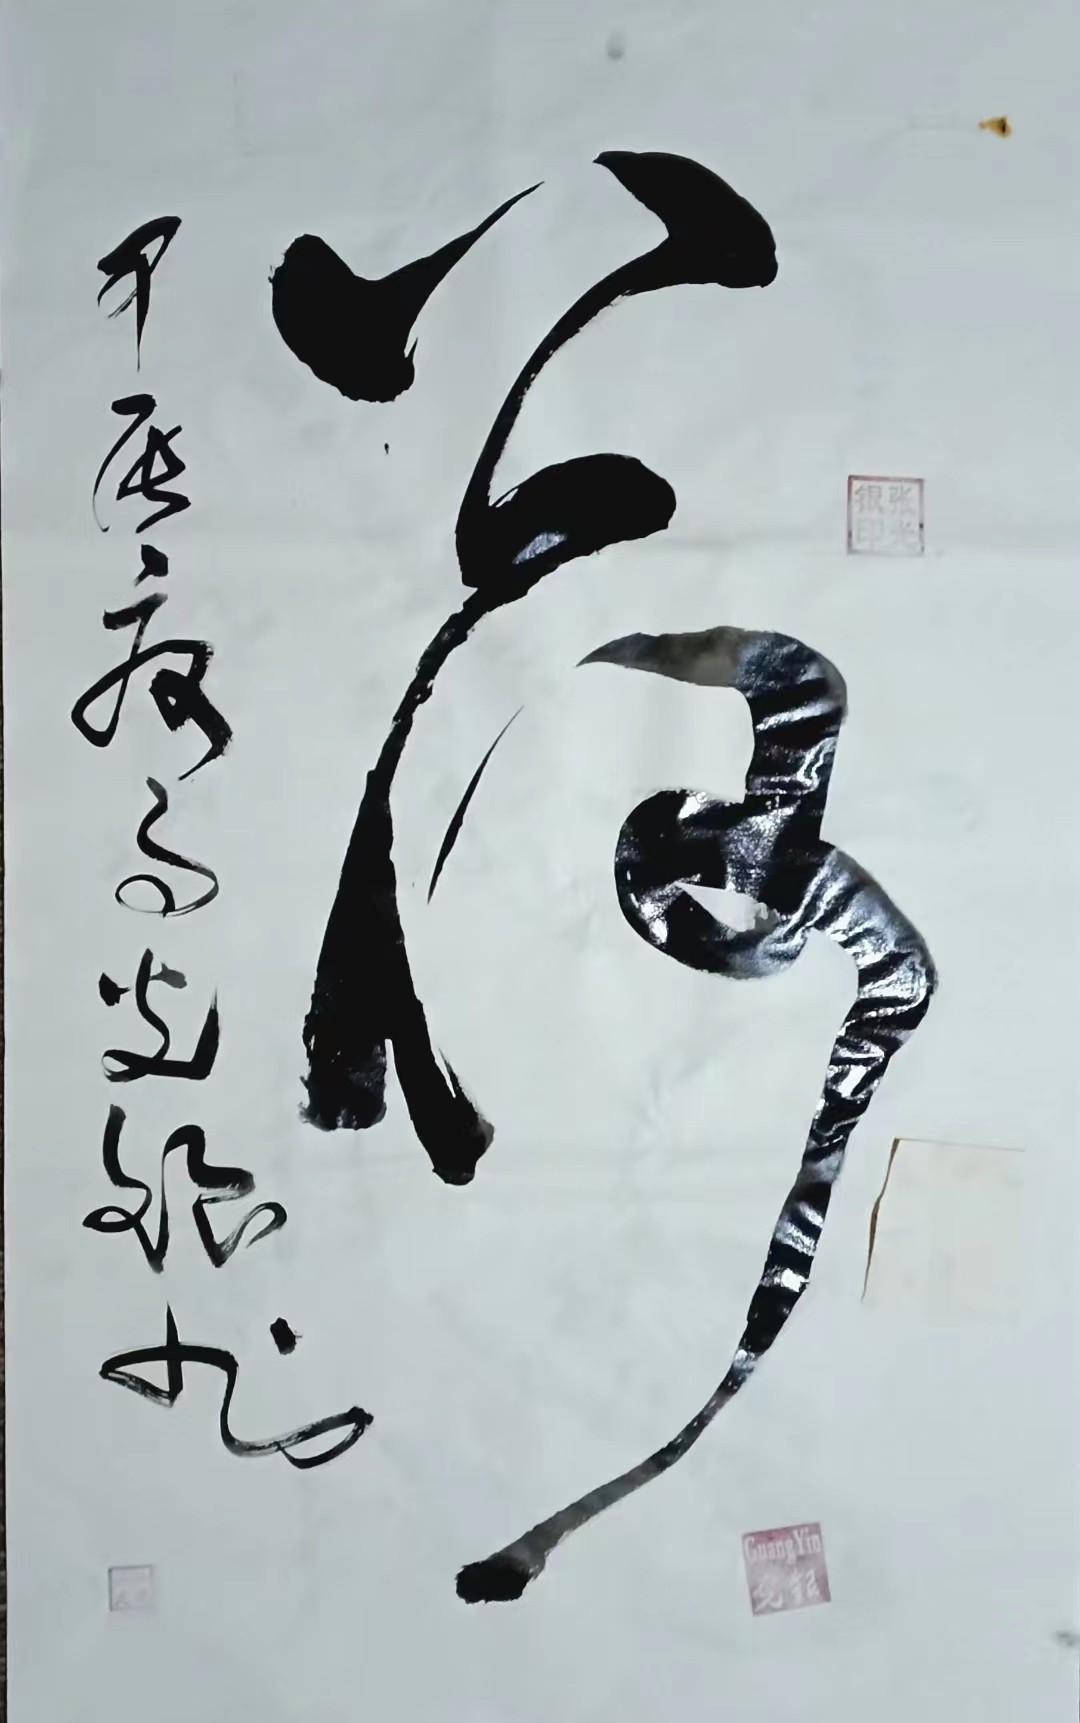 荷
甲辰夏光银书
张光银印
GuangYin
光银